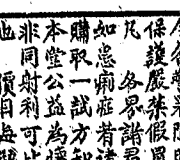 保護嚴禁假冒
凡各界諸君
如患痢症者請
購取一試方知
本堂公益為懷
非同射利可比
也價目每